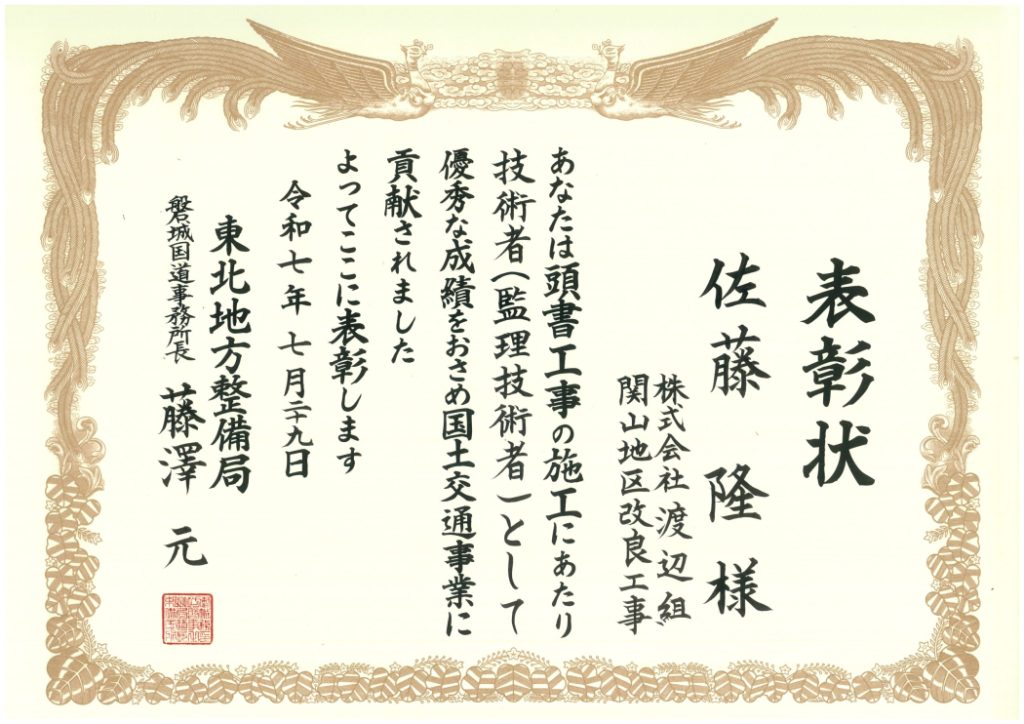 表彰状
佐藤 隆 様
株式会社渡辺組
関山地区改良工事
あなたは頭書工事の施工にあたり
技術者(監理技術者)として
優秀な成績をおさめ国土交通事業に
貢献されました
よってここに表彰します
令和七年 七月二十九日
東北地方整備局
磐城国道事務所長 藤澤 元